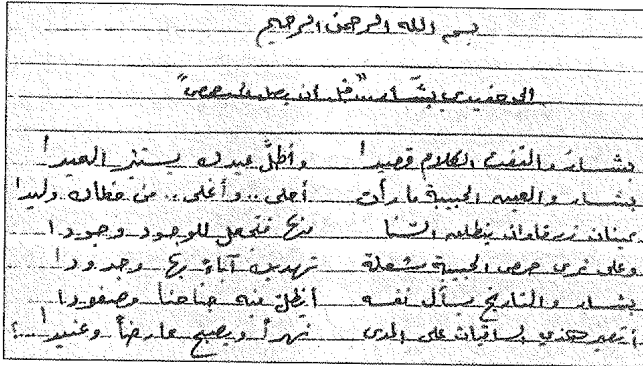 بسم الله الرحمن الرحيم
الى حفيدي بشّار.. "قبل ان يصل الى حمص"
بشار والتفت الكلام قصيدا وأطلّ عيدك يستثير العيدا
بشار والعين الحبيبة ما رأت أحلى.. وأغلى.. من خطاك وليدا
عينان زرقاوان ينطلق السّنا منها فتجعل للوجود وجودا
وعلى ثرى حمص الحبيبة شعلة تهدي آباءً بها وجدودا
بشار والتاريخ يسأل نفسه أيظل منه جناحنا مصفودا
أتصير هذي الساقيات على المدى نهراً ويصبح عارضاً وعنيدا..؟